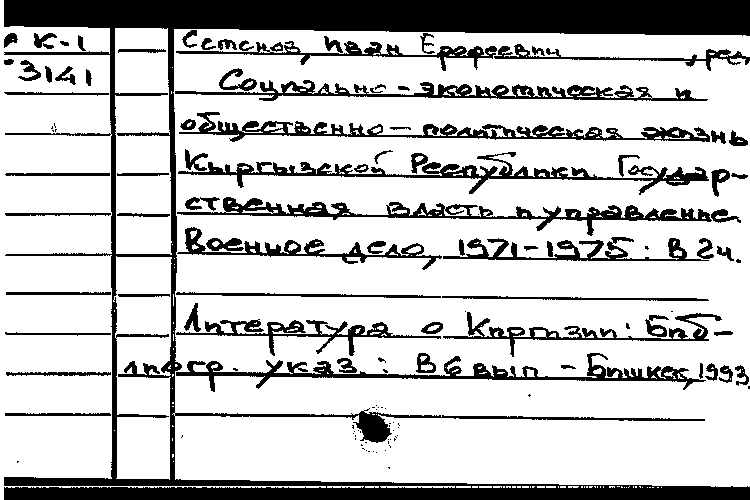 К-1 Семенов, Иван Ерофеевич, ред
3141 Социально-экономическая и
общественно-политическая жизнь
Кыргызской Республики. Государ-
ственная власть и управление.
Военное дело, 1971-1975: В 2ч.
Литература о Киргизии: Биб-
лиогр. указ.: В 6 вып. - Бишкек, 1993.